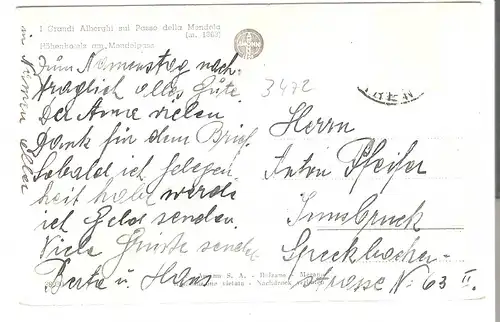 I Grandi Alberghi sul Passo della Mendola
(m. 1363)
Höhenhotels am Mendelpass
3472
Zum Namenstag nach-
träglich alles Gute.
Der Anna vielen
Dank für den Brief.
Sobald ich Gelegen
heit habe werde
ich Geld senden.
Viele Grüsse sendet
Berta u.
Herrn
Anton Pfeifer
Innsbruck
Speckbacher-
strasse No 63 II.
S. A. - Bolzano - Meran
vietata - Nachdruck